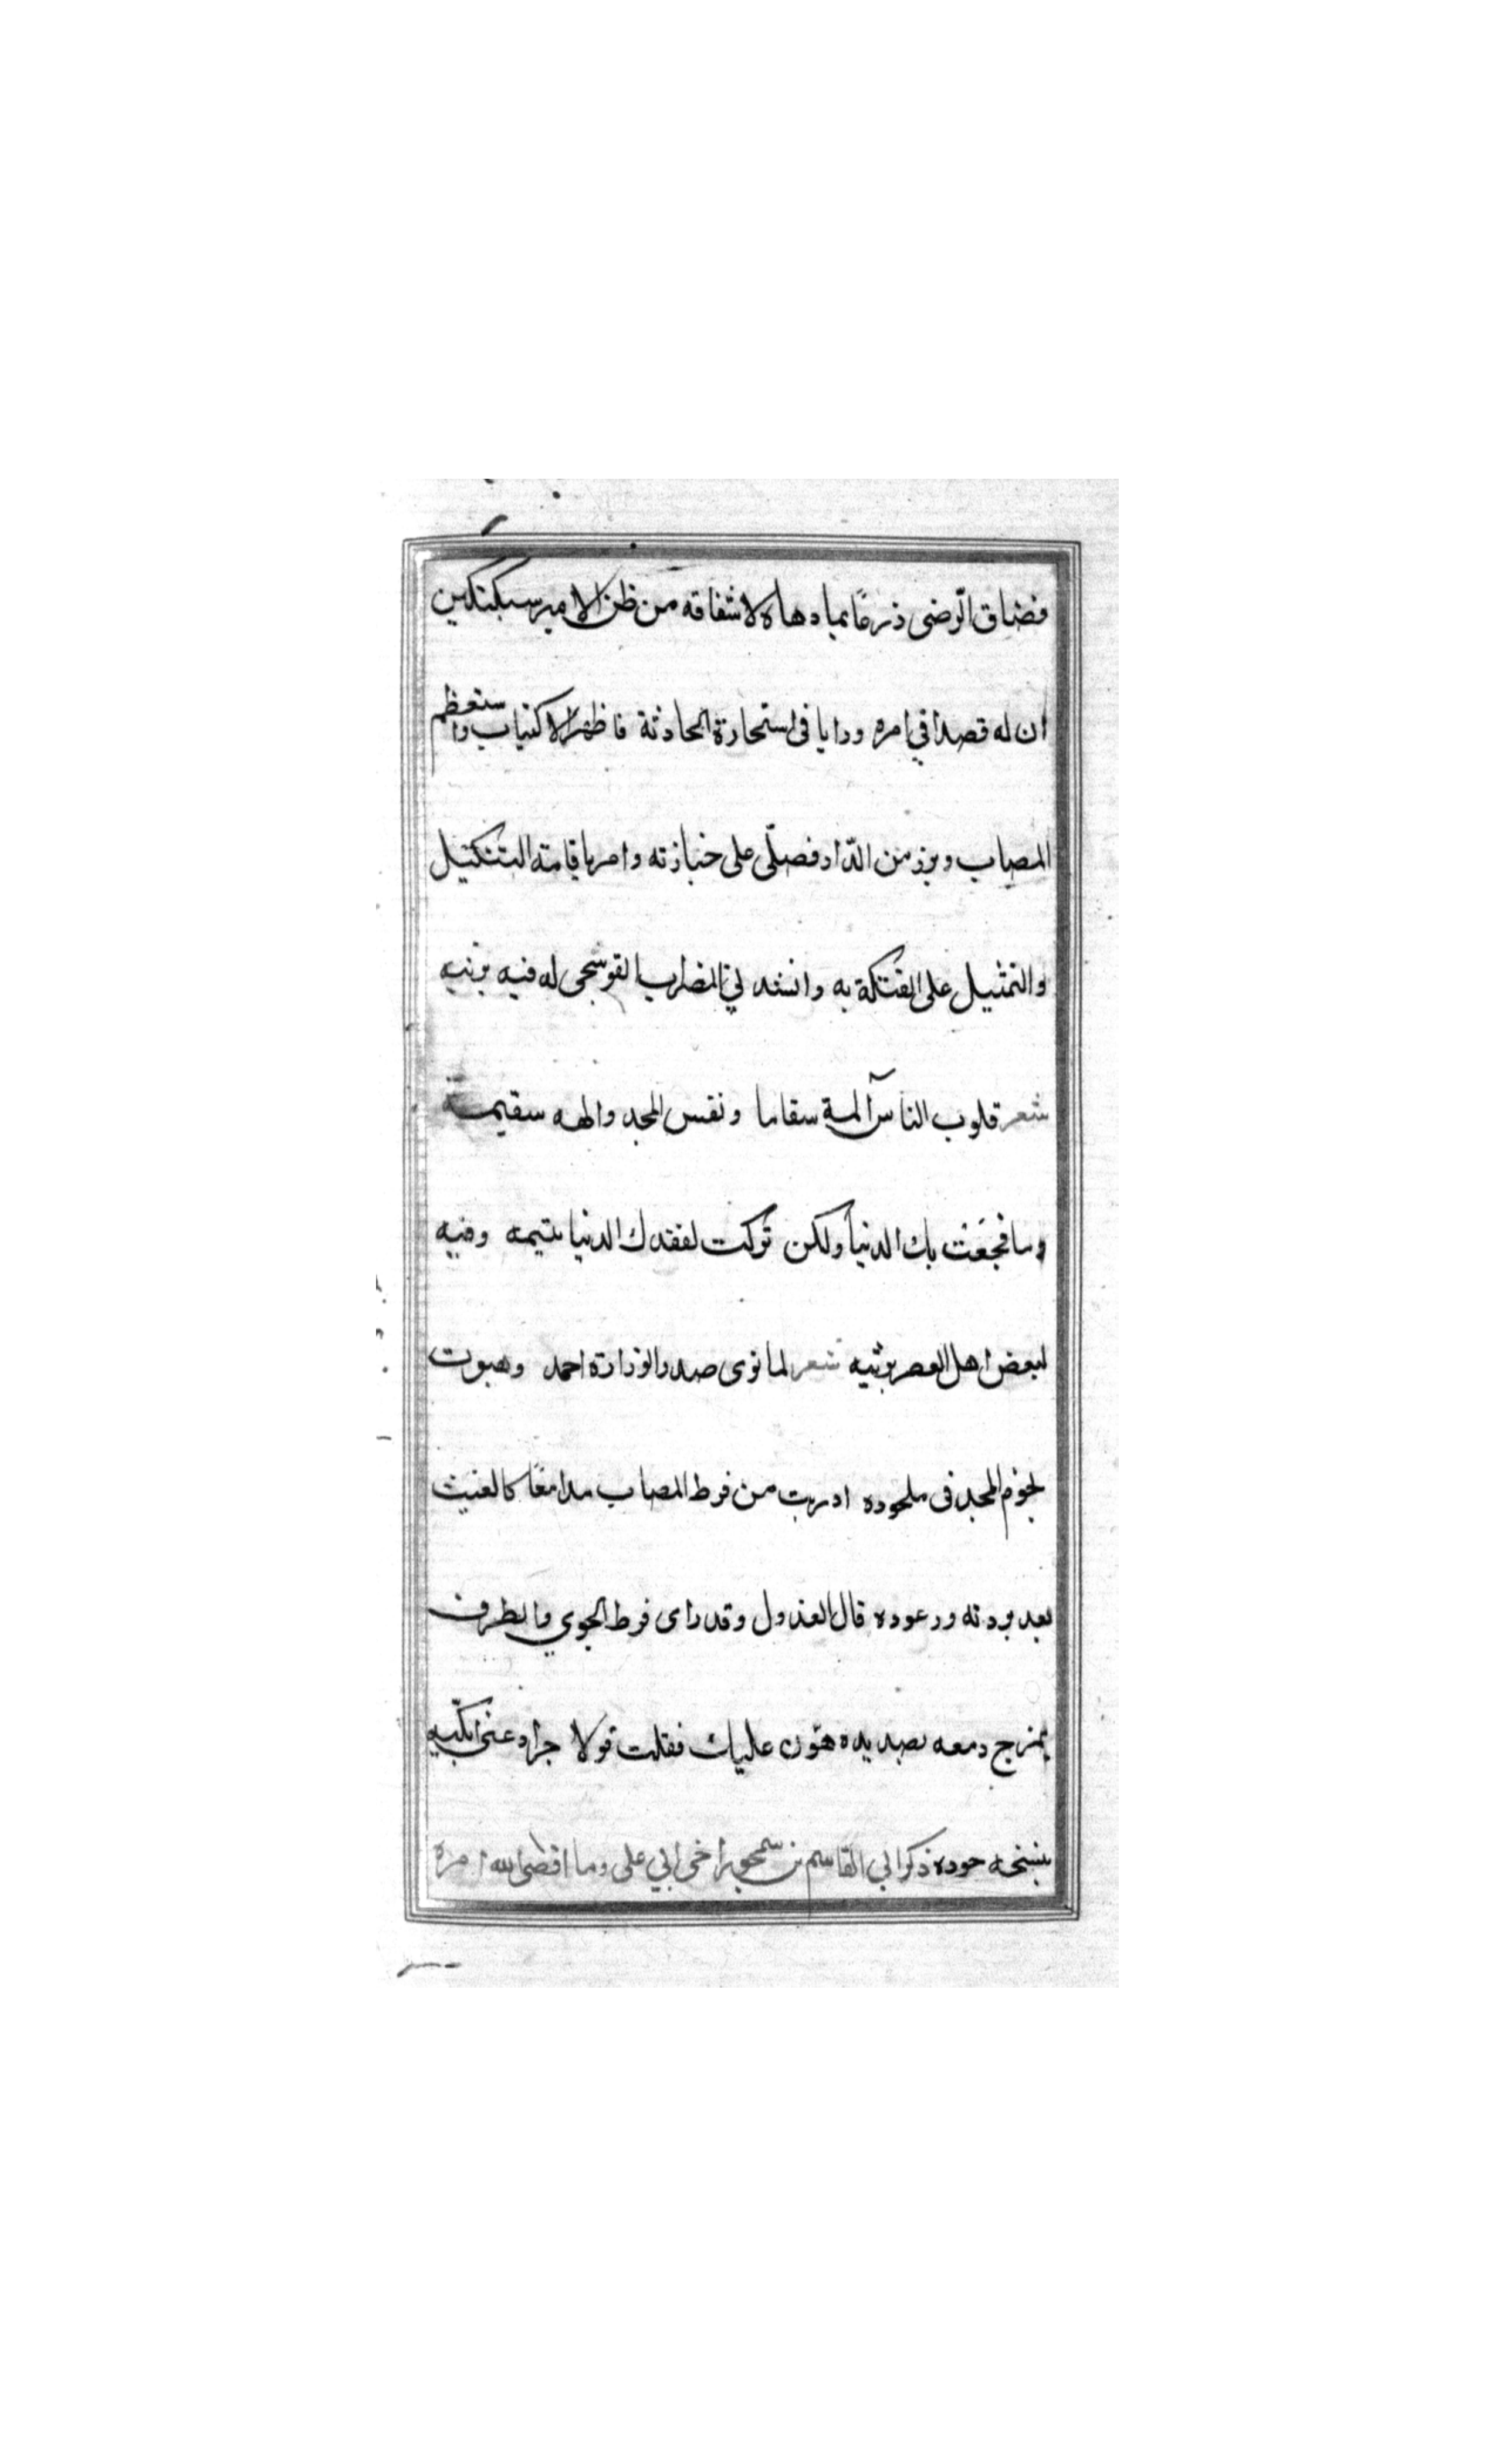 فضاق الرّضى ذرعًا بما دهاه لاشفاقه من ظن الامير سبكتكين
ان له قصدا في امره ورايا في استحارة الحادثة فاظهر الاكتياب واستعظم
المصاب وبرز من الدّار فصلّى على جنازته وامر باقامته التنكيل
والتمثيل على الفتكة به وانشد لي المضراب القوسجى له فيه يرثيه
شعر قلوب الناس آلمة سقاما ونفس المجد والهه سقيمة
وما فجعت بك الدنيا ولكن تركت لفقدك الدنيا يتيمه وفيه
لبعض اهل العصر يرثيه شعر لما ثوى صدر الوزارة احمد وهبوت
نجوم المجد في ملحوده اذريت من فرط المصاب مدامعًا كالغيث
بعد بردته ورعوده قال العذول وقد راى فرط الجوي والطرف
يمزج دمعه بصديده هوّن عليك فقلت قولا جراد عنى ابكّيه
بنسخه جوده ذكر ابي القاسم بن سمجور اخى ابي على وما افضى الله امره